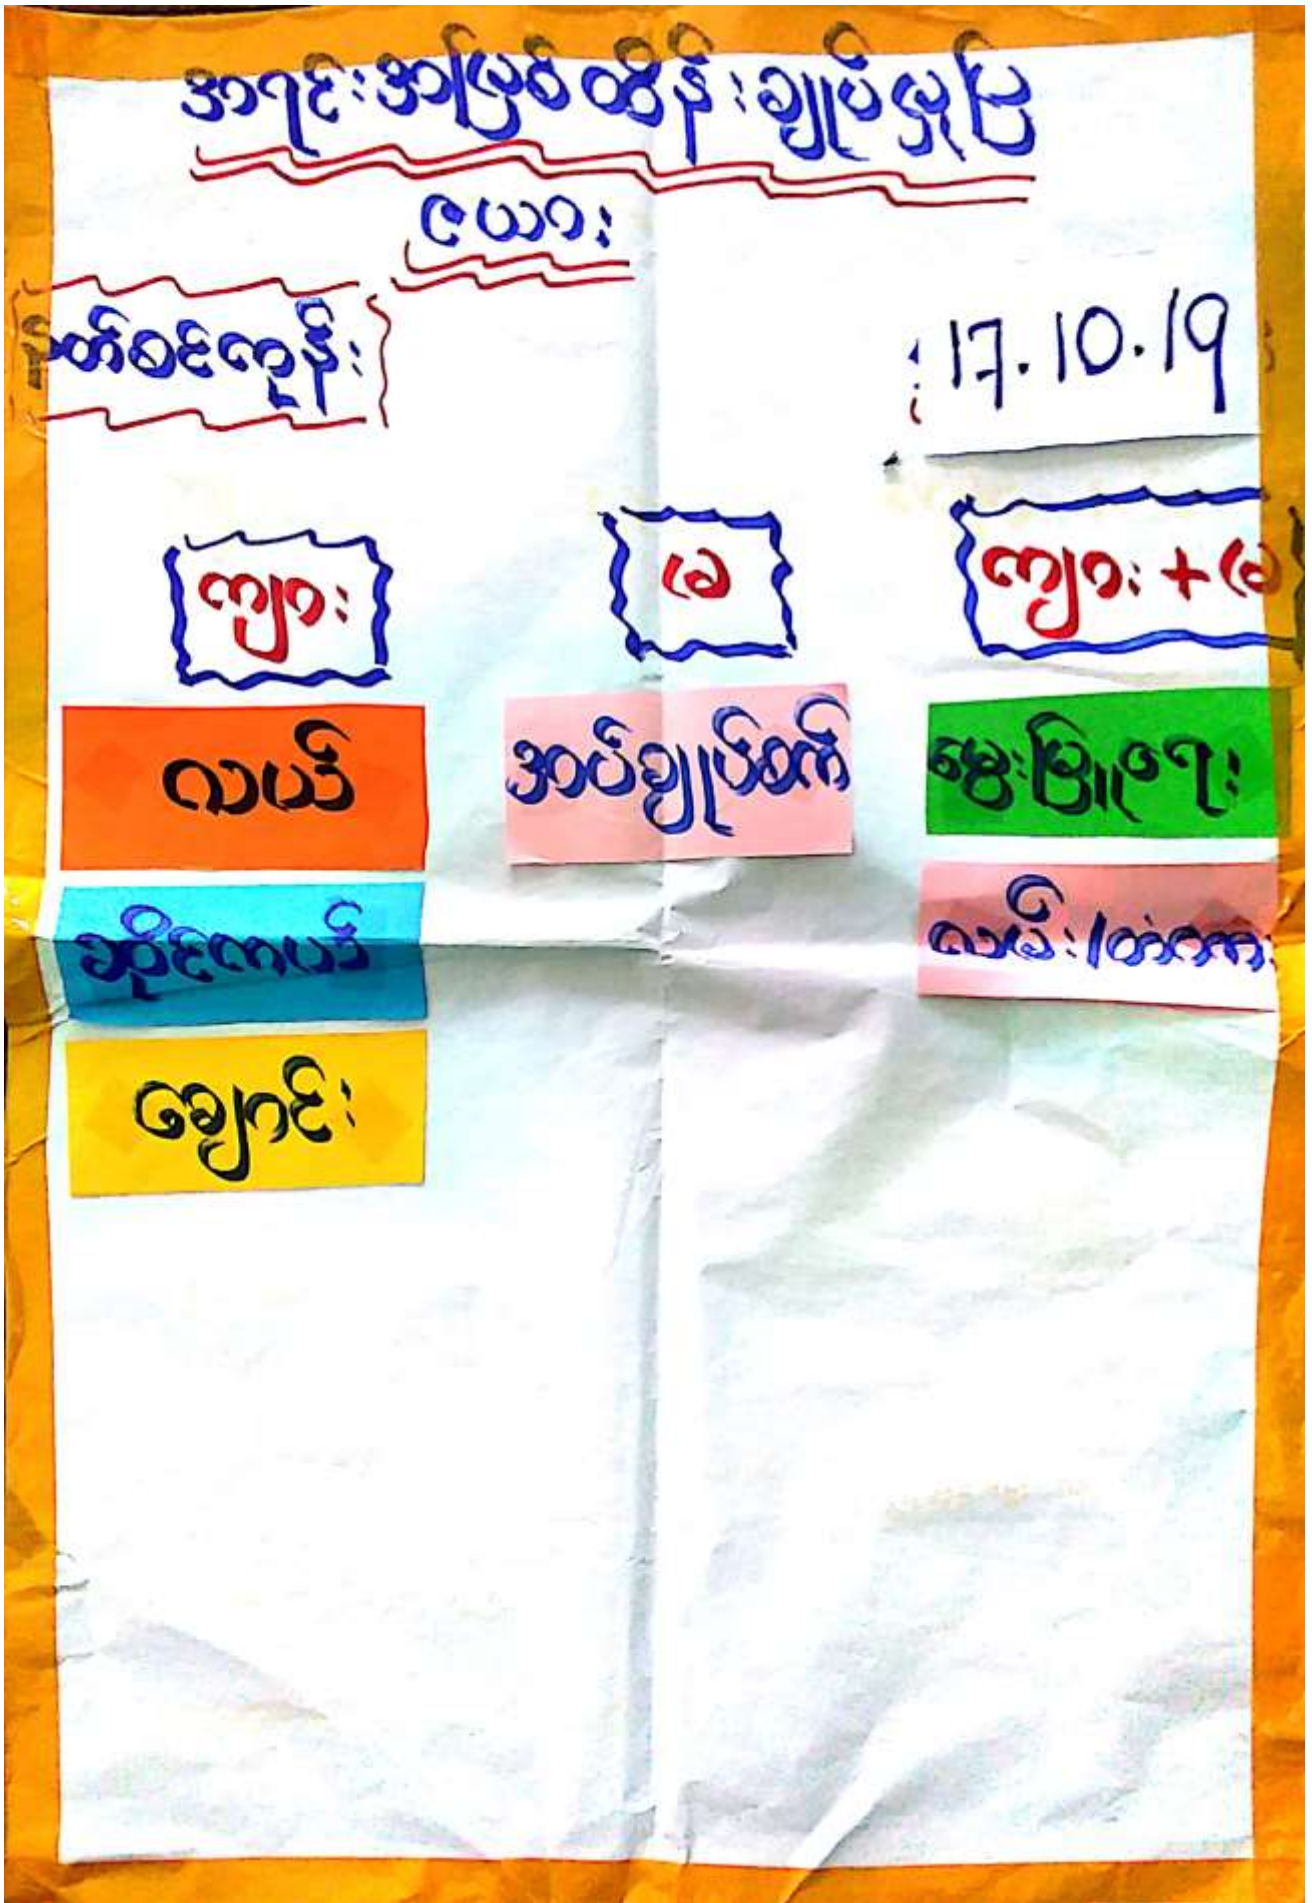 အရင်းအမြစ်ထိန်းချုပ်မှုပြ
ဇယား
ကုန်း
17.10.19
ကျား
မ
ကျား + မ
လယ်
အပ်ချုပ်စက်
မွေးမြူရေး
ဆိုင်ကယ်
လမ်း/တံတား
ချောင်း